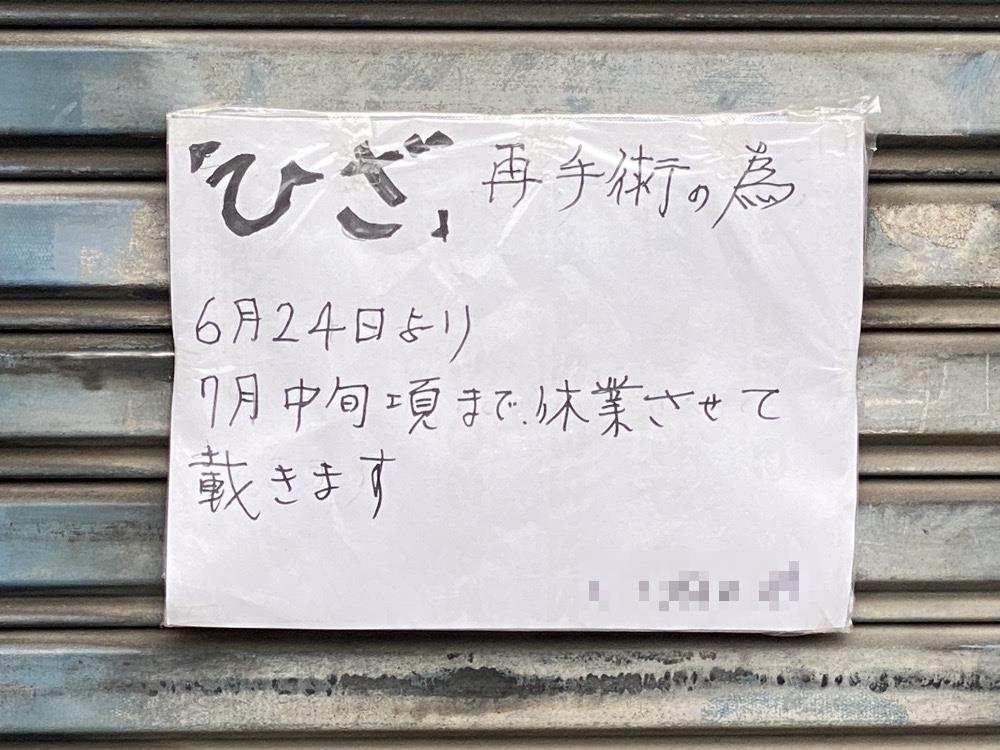 「ひざ」再手術の為
6月24日より
7月中旬頃まで休業させて
載きます